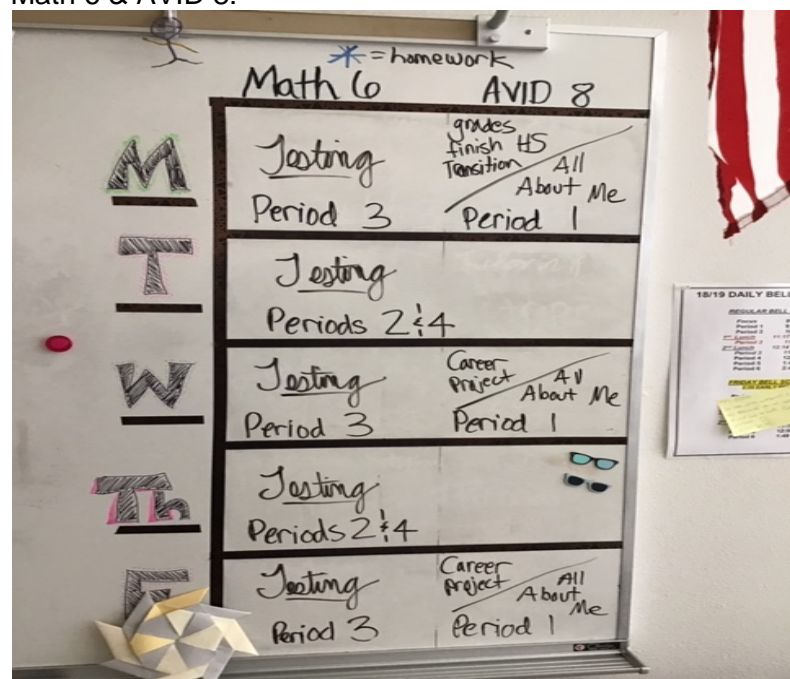 Math 6 & AVID 8.
* = homework
Math 6 AVID 8
M
Testing
Period 3
grades
finish HS
Transition
All
About Me
Period 1
T
Testing
Periods 2 & 4
W
Testing
Period 3
Career
Project
All
About Me
Period 1
Th
Testing
Periods 2 & 4
F
Testing
Period 3
Career
Project
All
About
Me
Period 1
18/19 DAILY BELL
REGULAR BELL
Focus
Period 1
Period 2
FRIDAY BELL